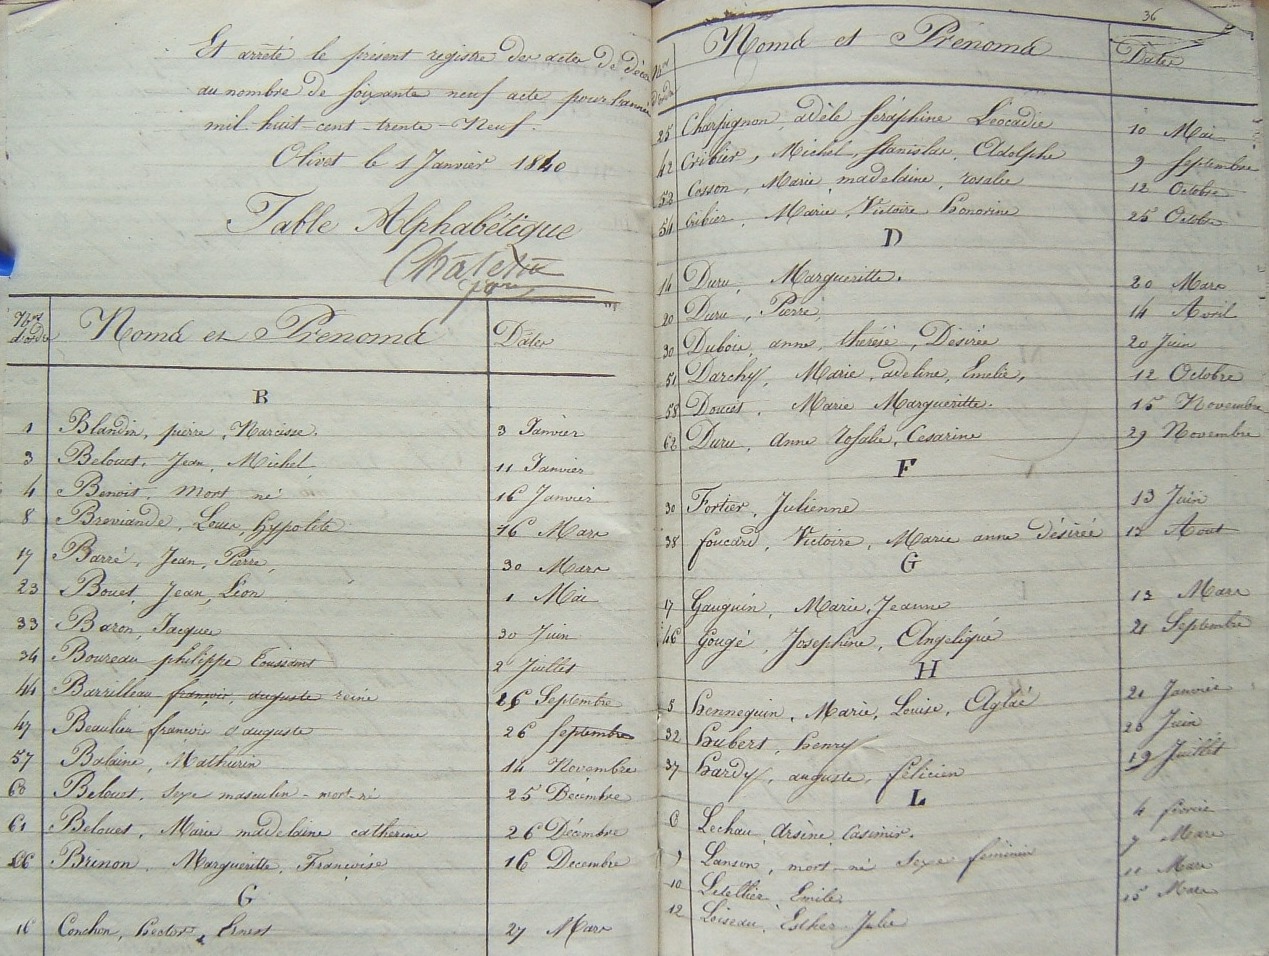 Est arrêté le présent registre des actes de décès
au nombre de soixante neuf acte pour l'année
mil-huit-cent-trente-Neuf.
Olivet le 1 Janvier 1840
Table Alphabétique
Nos d'ordre Noms et Prénoms Dates
B
1 Blandin, pierre, Narcisse. 3 Janvier
3 Belouet, Jean, Michel 11 Janvier
4 Benoit, mort né 16 Janvier
8 Breviande, Louis hyppolite 16 Mars
17 Barré, Jean, Pierre, 30 Mars
23 Bouet, Jean, Léon 1 Mai
33 Baron, Jacques 30 Juin
34 Boureau philippe Toussaint 2 Juillet
44 Barrilleau françois, auguste reine 26 Septembre
47 Beaulieu françois auguste 26 Septembre
57 Balaine, Mathurin 14 Novembre
68 Belouet, sexe masculin mort né 25 Décembre
61 Belouet, Marie madelaine catherine 26 Décembre
66 Brinon, Margueritte, Françoise 16 Decembre
C
16 Conchon, hector, Ernest 27 Mars
36
Nos d'ordre Noms et Prénoms Dates
25 Charpignon, adèle Séraphine Léocadie 10 Mai
42 Cribier, Michel Stanislas, Adolphe 9 Septembre
52 Cosson, Marie, madelaine, rosalie 12 Octobre
54 Cribier, Marie, Victoire honorine 25 Octobre
D
14 Duru, Margueritte. 20 Mars
20 Duru, Pierre, 14 Avril
30 Dubois, anne, thérèse, Désirée 20 Juin
51 Darchy, Marie, adeline, Emelie, 12 Octobre
58 Doucet, Marie Margueritte. 15 Novembre
62 Duru, Anne Rosalie, Cesarine 29 Novembre
F
30 Fortier, Julienne 13 Juin
38 foucard, Victoire, Marie anne désirée 12 Aout
G
17 Gauguin, Marie, Jeanne 12 Mars
46 Gougé, Josephine, Angelique 21 Septembre
H
5 hennequin, Marie, Louise, Aglaé 21 Janvier
32 hubert, henry 25 Juin
37 hardy, auguste, felicien 19 Juillet
L
6 Lechau, Arsène, Casimir. 4 fevrier
9 Lanson, mort-né Sexe féminin 7 Mars
10 Letellier, Emile 11 Mars
12 Loiseau, Esther Julie 15 Mars